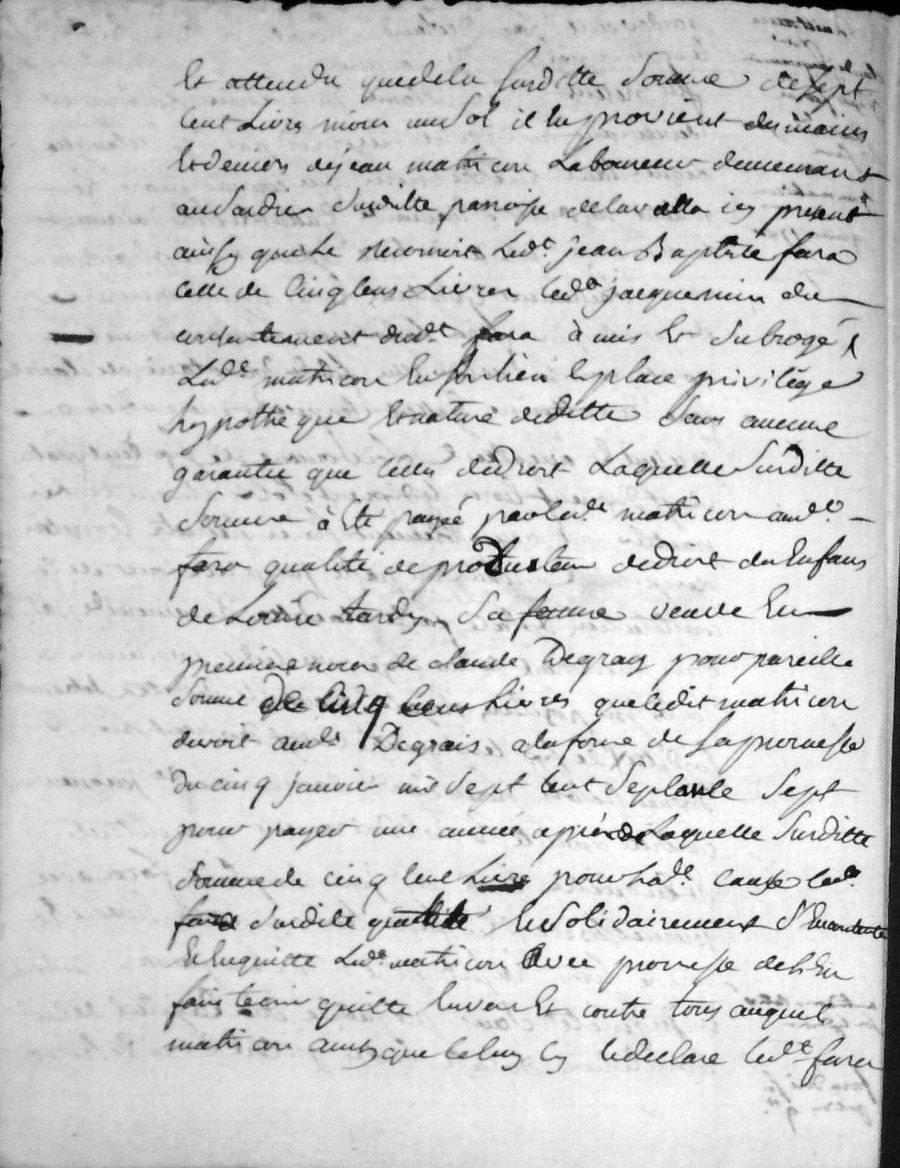 Et attendu que de la susditte somme de sept
cent Livres moins un sol il en provient des mains
et deniers de jean mathicon Laboureur demeurant
au Sardier susditte parroisse de lavalla icy present
ainsy que le reconnoit Led.t jean Baptiste fara
celle de cinq cens Livres led.t jacquemin du
consentement dud.t fara à mis et subrogé
Led.t mathicon en son lieu et place privilege
hypothèque et nature de dette sans aucune
garantie que celle de droit Laquelle susditte
somme à été payée par led.t mathicon aud.t
fara qualité de protuteur de droit des Enfans
de Louise tardy sa femme veuve en
premiere noces de claude Degray pour pareille
somme de cinq cens Livres que ledit mathicon
devoit aud.t Degrais a la forme de sa promesse
du cinq janvier mil sept cent septante sept
pour payer une année après de Laquelle susditte
somme de cinq cent Livres pour lad.te cause led.t
fara susditte qualité et solidairement s'en contente
et en quitte Led.t mathicon avec promesse de l'En
faire tenir quitte envers et contre tous auquel
mathicon ainsy que celuy cy le declare led.t fara